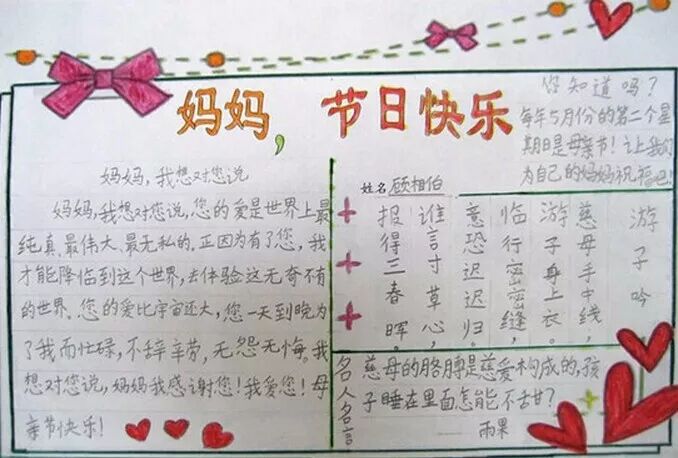 妈妈，节日快乐
你知道吗？
每年5月份的第二个星
期日是母亲节！让我们
为自己的妈妈祝福吧！
妈妈，我想对您说
妈妈，我想对您说，您的爱是世界上最
纯真、最伟大、最无私的。正因为有了您，我
才能降临到这个世界，去体验这无奇不有
的世界、您的爱比宇宙还大，您一天到晚为
了我而忙碌，不辞辛劳，无怨无悔。我
想对您说，妈妈我感谢您！我爱您！母
亲节快乐！
姓名 顾相伯
游子吟
慈母手中线，
游子身上衣。
临行密密缝，
意恐迟迟归。
谁言寸草心，
报得三春晖。
名人名言
慈母的胳膊是慈爱构成的，孩
子睡在里面怎能不舌甘？
雨果